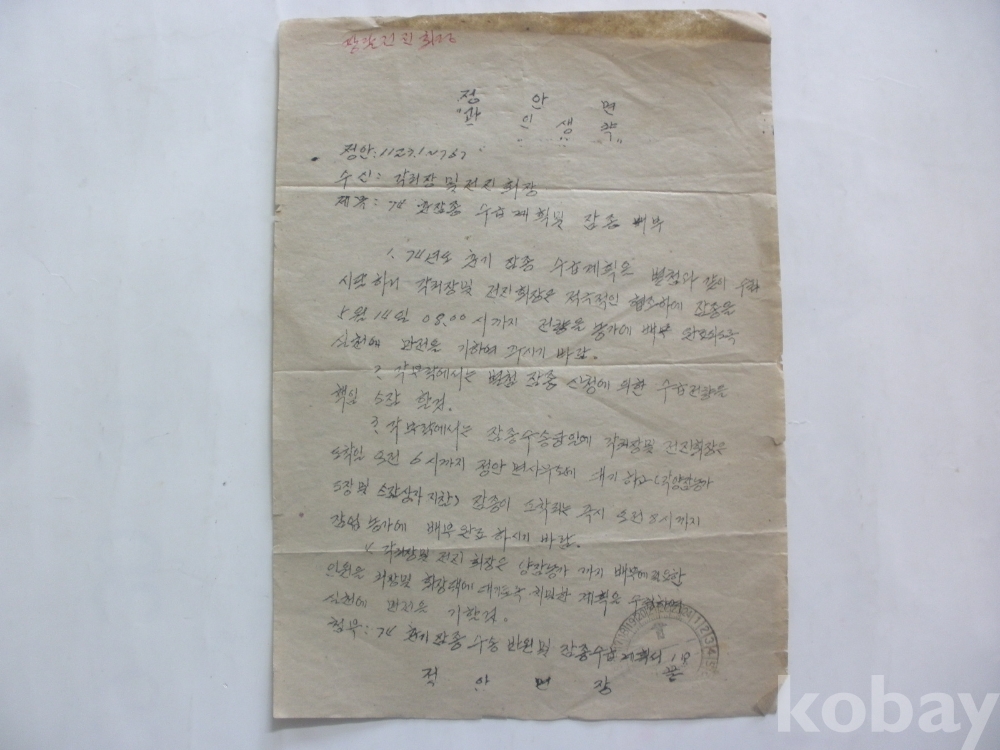 정 안 면
정안:1123.1
수신: 각리장 및 전진회장
제목: 74 춘잠종 수급계획및 잠종 배부
1. 74년도 춘기 잠종 수급계획은 별첨과 같이
시달하니 각리장및 전진회장은 적극적인 협조하에 잠종을
5월 14일 08.00 시까지 전량을 농가에 배부
실천에 만전을 기하여 주시기 바람.
2. 각부락에서는 별첨 잠종 신청에 의한 수급전량을
책임 소잠 할것.
3. 각부락에서는 잠종수송당일에 각리장및 전진회장은
도착일 오전 6시까지 정안 면사무소에 대기 하고
잠종이 도착되는 즉시 오전 8시까지
농가에 배부완료 하시기 바람.
4. 각리장및 전진 회장은 양잠농가 까지 배부에 필요한
인원을 리장및 회장댁에 대기토록 치밀한 계획을 수립하여
실천에 만전을 기할것.
첨부: 74 춘기 잠종 수송 반원 및 잠종수급 계획서 1부
끝
정 안 면 장
kobay